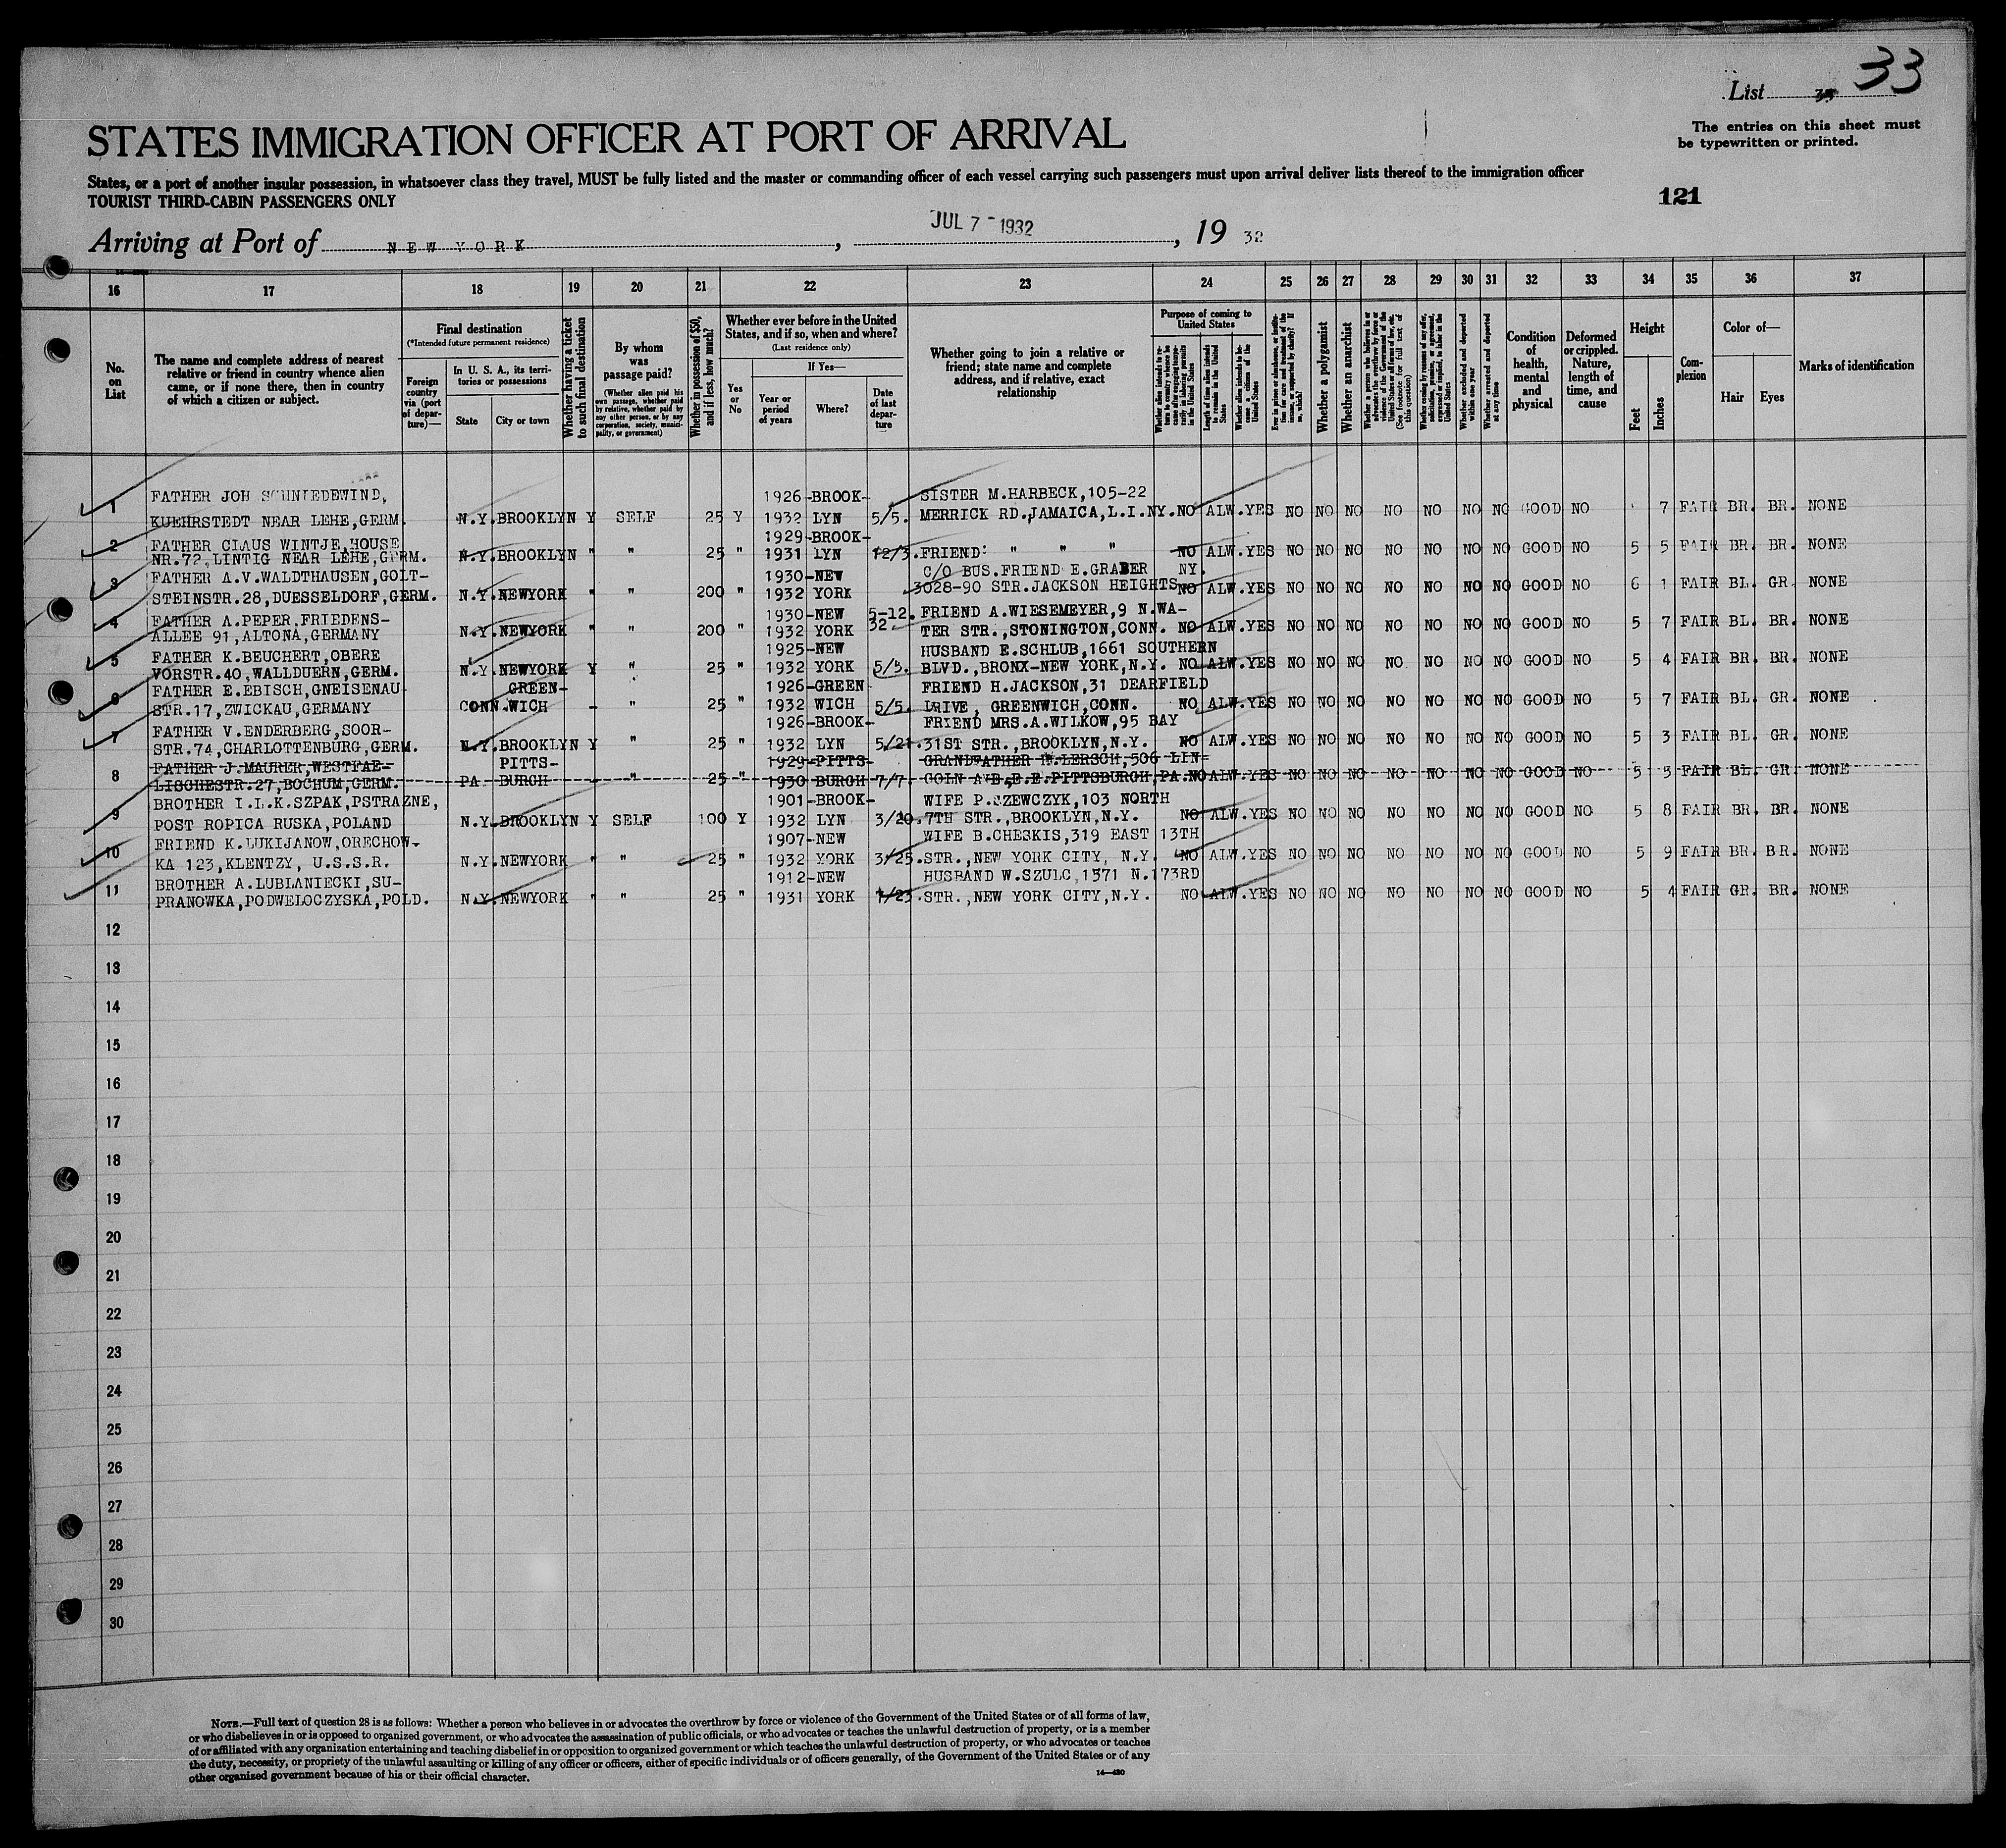 List 33
The entries on this sheet must
be typewritten or printed.
STATES IMMIGRATION OFFICER AT PORT OF ARRIVAL
States, or a port of another insular possession, in whatsoever class they travel, MUST be fully listed and the master or commanding officer of each vessel carrying such passengers must upon arrival deliver lists thereof to the immigration officer
TOURIST THIRD-CABIN PASSENGERS ONLY
121
Arriving at Port of NEW YORK , JUL 7 - 1932 , 19 32
16 17 18 19 20 21 22 23 24 25 26 27 28 29 30 31 32 33 34 35 36 37
No. on List
The name and complete address of nearest relative or friend in country whence alien came, or if none there, then in country of which a citizen or subject.
Final destination
(*Intended future permanent residence)
Foreign country via (port of departure)—
In U. S. A., its territories or possessions
State
City or town
Whether having a ticket to such final destination
By whom was passage paid?
(Whether alien paid his own passage, whether paid by relative, whether paid by any other person, or by any corporation, society, municipality, or government)
Whether in possession of $50, and if less, how much?
Whether ever before in the United States, and if so, when and where?
(Last residence only)
Yes or No
If Yes—
Year or period of years
Where?
Date of last departure
Whether going to join a relative or friend; state name and complete address, and if relative, exact relationship
Purpose of coming to United States
Whether alien intends to return to country whence he came after engaging temporarily in laboring pursuits in the United States
Length of time alien intends to remain in the United States
Whether alien intends to become a citizen of the United States
Ever in prison or almshouse, or institution for care and treatment of the insane, or supported by charity? If so, which?
Whether a polygamist
Whether an anarchist
Whether a person who believes in or advocates the overthrow by force or violence of the Government of the United States or all forms of law, etc. (See footnote for full text of this question)
Whether coming by reasons of any offer, solicitation, promise, or agreement, expressed or implied, to labor in the United States
Whether excluded and deported within one year
Whether arrested and deported at any time
Condition of health, mental and physical
Deformed or crippled. Nature, length of time, and cause
Height
Feet
Inches
Complexion
Color of—
Hair
Eyes
Marks of identification
FATHER JOH SCHNIEDEWIND, 1926-BROOK- SISTER M.HARBECK,105-22
1 KUEHRSTEDT NEAR LEHE,GERM. N.Y. BROOKLYN Y SELF 25 Y 1932 LYN 5/5. MERRICK RD.,JAMAICA,L.I.NY. NO ALW. YES NO NO NO NO NO NO NO GOOD NO 7 FAIR BR. BR. NONE
FATHER CLAUS WINTJE,HOUSE 1929-BROOK-
2 NR.72,LINTIG NEAR LEHE,GERM. N.Y. BROOKLYN " " 25 " 1931 LYN 12/3. FRIEND: " " " NO ALW. YES NO NO NO NO NO NO NO GOOD NO 5 5 FAIR BR. BR. NONE
FATHER A.V.WALDTHAUSEN,GOLT- 1930-NEW C/O BUS.FRIEND E.GRABER NY.
3 STEINSTR.28,DUESSELDORF,GERM. N.Y. NEWYORK " " 200 " 1932 YORK 3028-90 STR.JACKSON HEIGHTS NO ALW. YES NO NO NO NO NO NO NO GOOD NO 6 1 FAIR BL. GR. NONE
FATHER A.PEPER,FRIEDENS- 1930-NEW 5-12. FRIEND A.WIESEMEYER,9 N.WA-
4 ALLEE 91,ALTONA,GERMANY N.Y. NEWYORK " " 200 " 1932 YORK 32. TER STR.,STONINGTON,CONN. NO ALW. YES NO NO NO NO NO NO NO GOOD NO 5 7 FAIR BL. BR. NONE
FATHER K.BEUCHERT,OBERE 1925-NEW HUSBAND E.SCHLUB,1661 SOUTHERN
5 VORSTR.40,WALLDUERN,GERM. N.Y. NEWYORK Y " 25 " 1932 YORK 5/3. BLVD.,BRONX-NEW YORK,N.Y. NO ALW. YES NO NO NO NO NO NO NO GOOD NO 5 4 FAIR BR. BR. NONE
FATHER E.EBISCH,GNEISENAU- GREEN- 1926-GREEN FRIEND H.JACKSON,31 DEARFIELD
6 STR.17,ZWICKAU,GERMANY CONN. WICH - " 25 " 1932 WICH 5/5. DRIVE, GREENWICH,CONN. NO ALW. YES NO NO NO NO NO NO NO GOOD NO 5 7 FAIR BL. GR. NONE
FATHER V.ENDERBERG,SOOR- 1926-BROOK- FRIEND MRS.A.WILKOW,95 BAY
7 STR.74,CHARLOTTENBURG,GERM. N.Y. BROOKLYN Y " 25 " 1932 LYN 5/21. 31ST STR.,BROOKLYN,N.Y. NO ALW. YES NO NO NO NO NO NO NO GOOD NO 5 3 FAIR BL. GR. NONE
FATHER J.MAURER,WESTFAE- PITTS- 1929-PITTS- GRANDFATHER W.LERSCH,506 LIN-
8 LISCHESTR.27,BOCHUM,GERM. PA BURGH - " 25 " 1930 BURGH 7/7. COLN AVE,E.E.PITTSBURGH,PA. NO ALW. YES NO NO NO NO NO NO NO GOOD NO 5 5 FAIR BL. GR NONE
BROTHER I.L.K.SZPAK,PSTRAZNE, 1901-BROOK- WIFE P.SZEWCZYK,103 NORTH
9 POST ROPICA RUSKA,POLAND N.Y. BROOKLYN Y SELF 100 Y 1932 LYN 3/20. 7TH STR.,BROOKLYN,N.Y. NO ALW. YES NO NO NO NO NO NO NO GOOD NO 5 8 FAIR BR. BR. NONE
FRIEND K.LUKIJANOW,ORECHOW- 1907-NEW WIFE B.CHESKIS,319 EAST 13TH
10 KA 123,KLENTZY, U.S.S.R. N.Y. NEWYORK " " 25 " 1932 YORK 3/25. STR.,NEW YORK CITY, N.Y. NO ALW. YES NO NO NO NO NO NO NO GOOD NO 5 9 FAIR BR. BR. NONE
BROTHER A.LUBLANIECKI,SU- 1912-NEW HUSBAND W.SZULC,1571 N.173RD
11 PRANOWKA,PODWELOCZYSKA,POLD. N.Y. NEWYORK " " 25 " 1931 YORK 7/23. STR.,NEW YORK CITY,N.Y. NO ALW. YES NO NO NO NO NO NO NO GOOD NO 5 4 FAIR GR. BR. NONE
12
13
14
15
16
17
18
19
20
21
22
23
24
25
26
27
28
29
30
NOTE.—Full text of question 28 is as follows: Whether a person who believes in or advocates the overthrow by force or violence of the Government of the United States or of all forms of law,
or who disbelieves in or is opposed to organized government, or who advocates the assassination of public officials, or who advocates or teaches the unlawful destruction of property, or is a member
of or affiliated with any organization entertaining and teaching disbelief in or opposition to organized government or which teaches the unlawful destruction of property, or who advocates or teaches
the duty, necessity, or propriety of the unlawful assaulting or killing of any officer or officers, either of specific individuals or of officers generally, of the Government of the United States or of any
other organized government because of his or their official character.
14—480